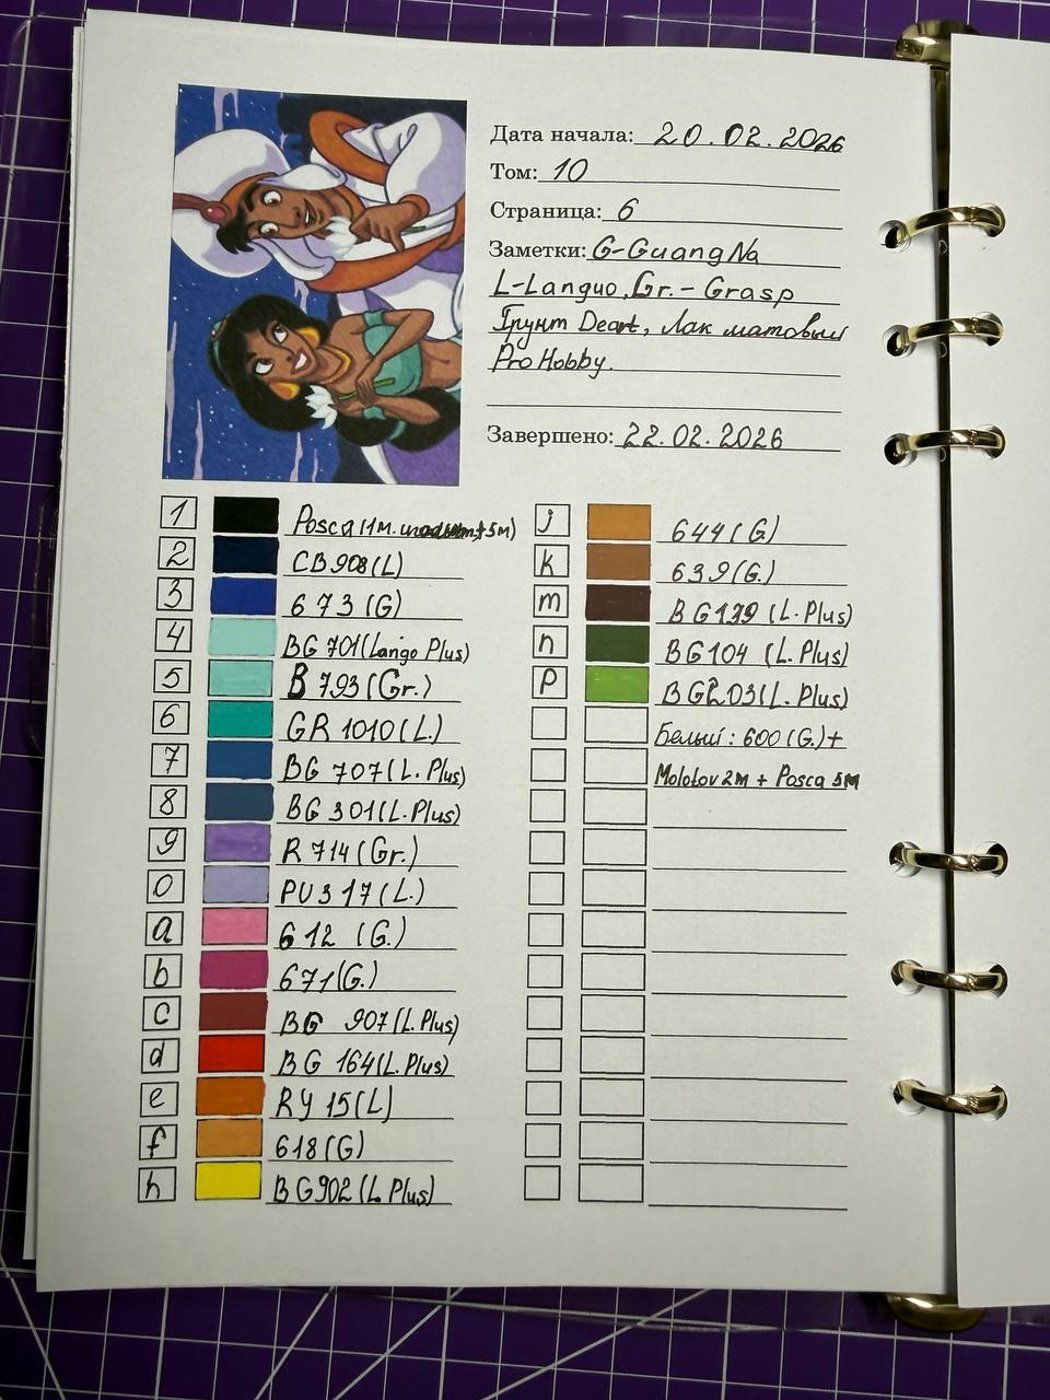 Дата начала: 20.02.2026
Том: 10
Страница: 6
Заметки: G-GuangNa
L-Languo, Gr. - Grasp
Грунт Deart, Лак матовый
ProHobby.
Завершено: 22.02.2026
1 Posca (1м. +5м)
2 CB 908(L)
3 673 (G)
4 BG 701(Lango Plus)
5 B 793 (Gr.)
6 GR 1010(L.)
7 BG 707(L. Plus)
8 BG 301(L.Plus)
9 R 714 (Gr.)
0 PU 317(L.)
a 612 (G.)
b 671(G.)
c BG 907(L.Plus)
d BG 164(L.Plus)
e RY 15(L)
f 618(G)
h BG902(L.Plus)
j 644(G)
k 639(G.)
m BG139 (L.Plus)
n BG104 (L.Plus)
p BG203(L.Plus)
Белый: 600(G.)+
Molotov 2м + Posca 5м